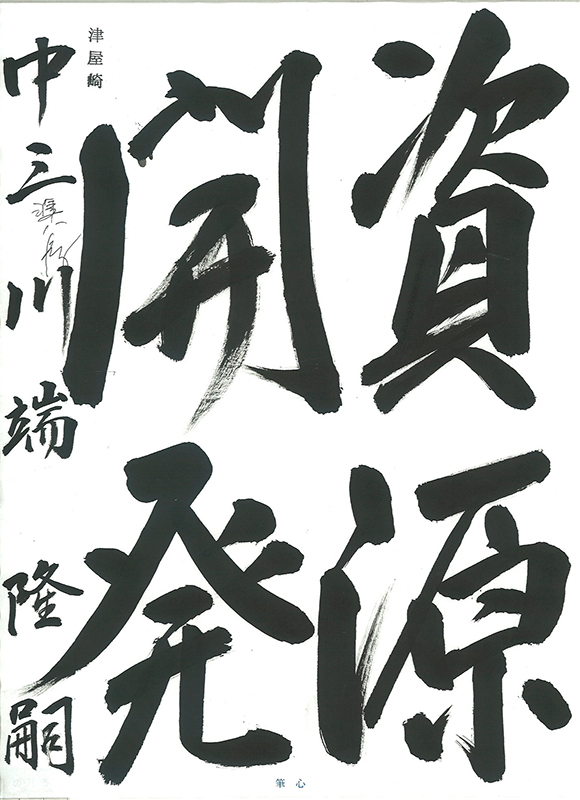 資源
開発
津屋崎
中三 川端 隆嗣
準八段
心筆